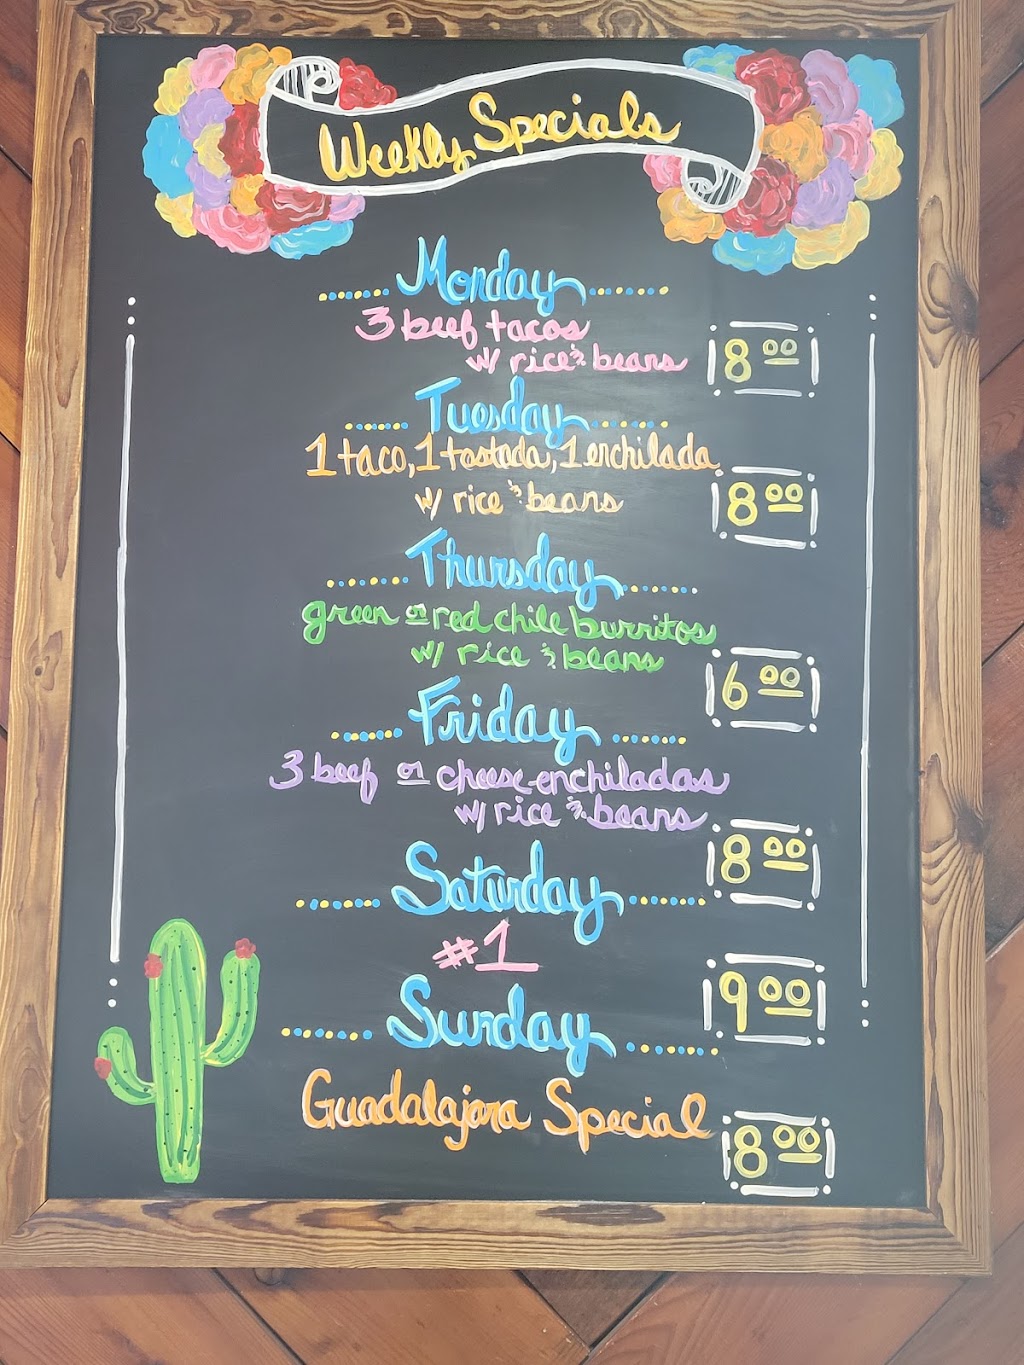 Weekly Specials
Monday
3 beef tacos
w/ rice & beans
8 00
Tuesday
1 taco, 1 tostada, 1 enchilada
w/ rice & beans
8 00
Thursday
green or red chile burritos
w/ rice & beans
6 00
Friday
3 beef or cheese enchiladas
w/ rice & beans
8 00
Saturday
#1
9 00
Sunday
Guadalajara Special
8 00